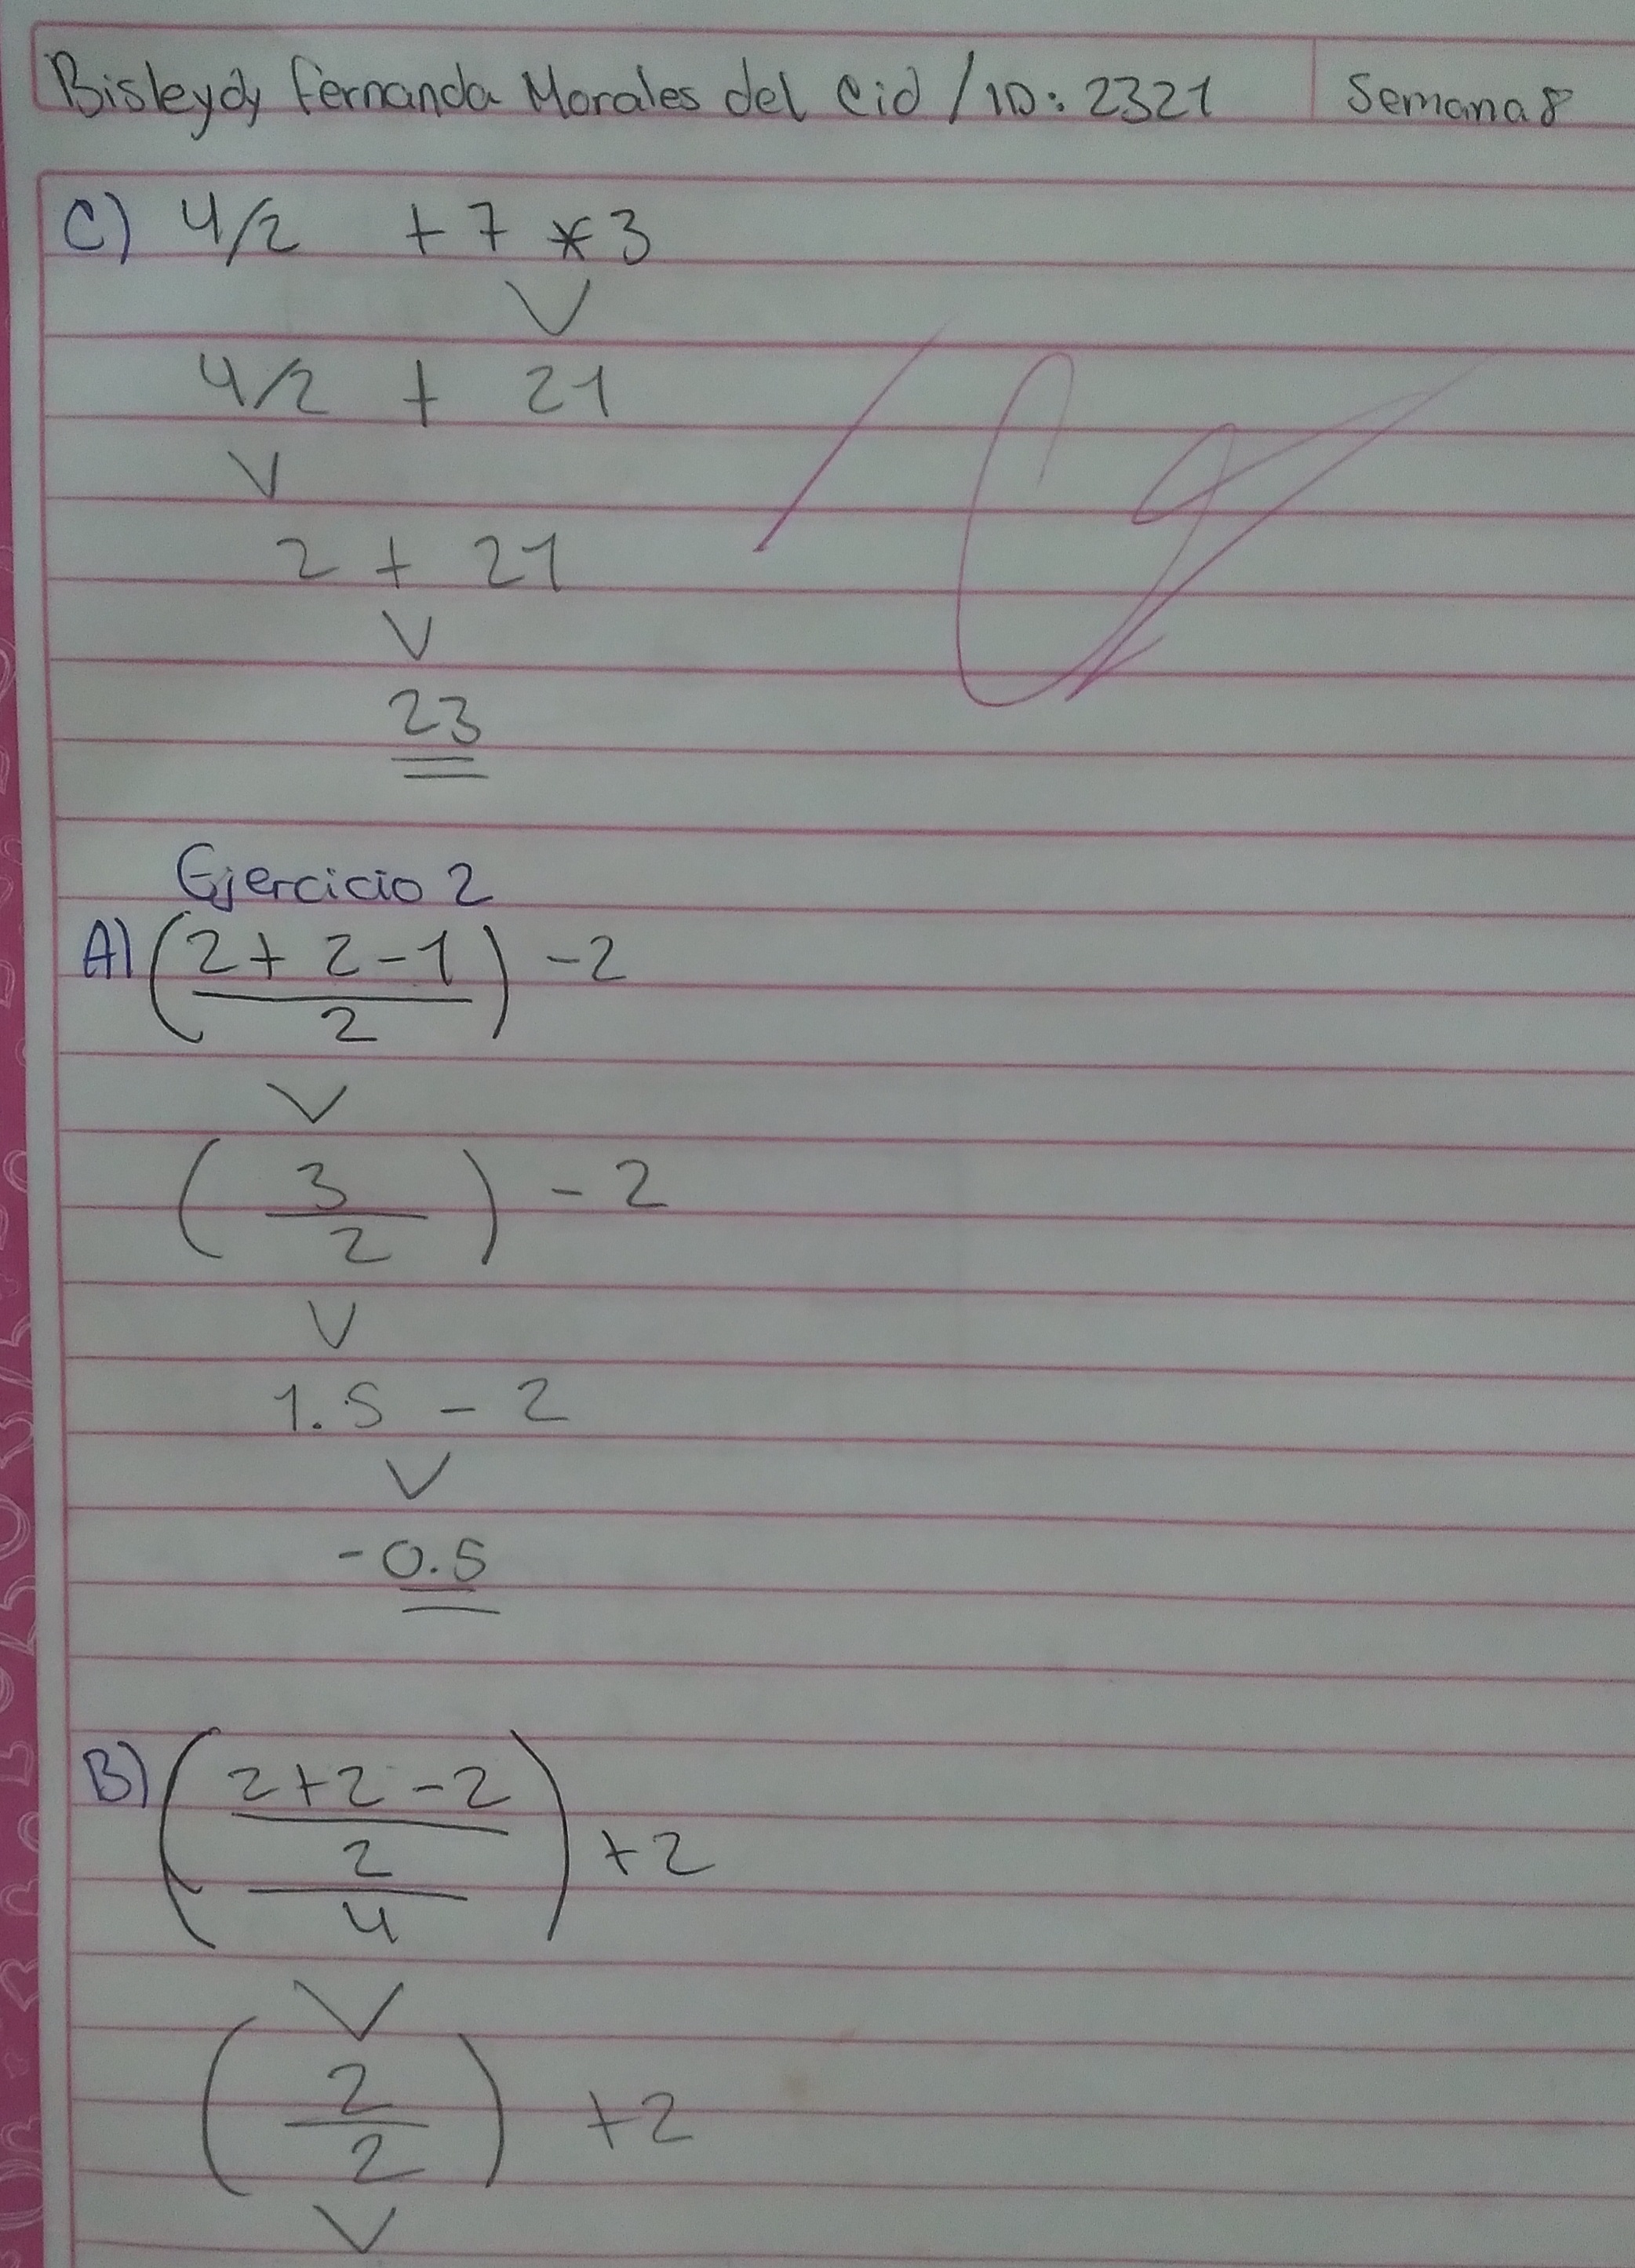 Bisleydy Fernanda Morales del Cid / ID: 2321 Semana 8
C) 4/2 + 7 * 3
4/2 + 21
2 + 21
23
Ejercicio 2
A) (2 + 2 - 1
2) - 2
(3
2) - 2
1.5 - 2
-0.5
B) (2 + 2 - 2
2
4) + 2
(2
2) + 2